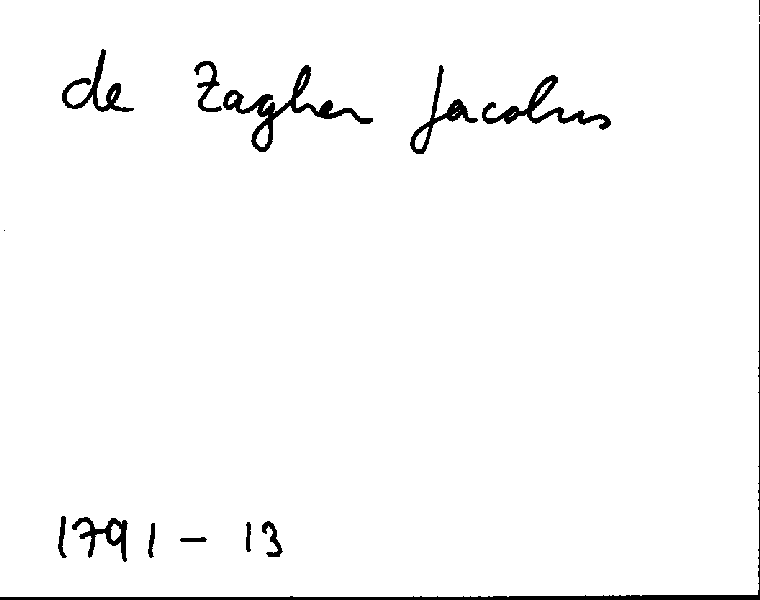 de Zagher Jacobus
1791 - 13